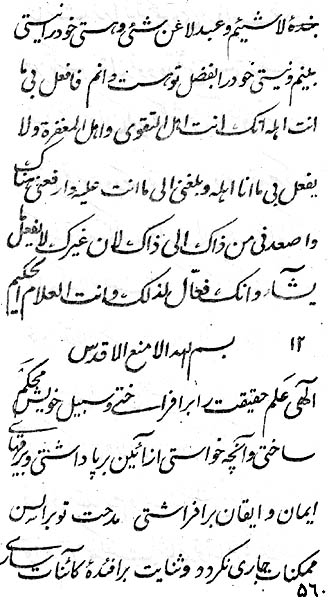 بنده لاشیئم و عبد لا عن شئی و هستی خود را نیستی
بینم و نیستی خود را بفضل تو هست دانم فافعل بی ما
انت اهله انک انت اهل التقوی و اهل المغفرة و لا
یفعل بی ما انا اهله و بلغنی الی ما انت علیه و ارفعنی هناک
و اصعدنی من ذاک الی ذاک لان غیرک لا یفعل ما
یشآء و انک فعال لذلک و انت العلام الحکیم
۱۲ بسم الله الامنع الاقدس
الهی علم حقیقت را برافراختی و سبیل خویش محکم
ساختی و آنچه خواستی از آئین برپا داشتی و بیرقهای
ایمان و ایقان برافراشتی مدحت تو بر السن
ممکنات جاری نگردد و ثنایت بر افئدهٔ کائنات ساری
۵۶۰